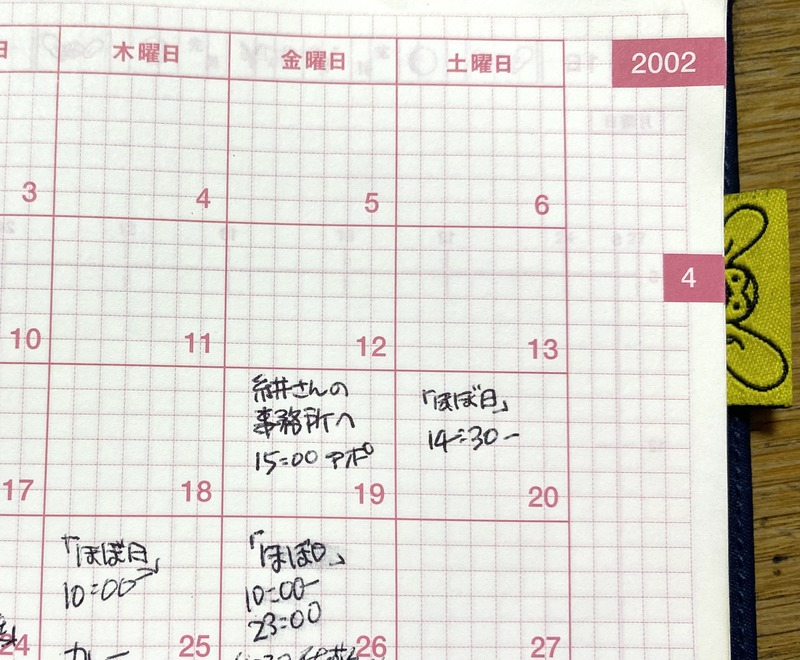 日 木曜日 金曜日 土曜日 2002
3 4 5 6
4
10 11 12 13
糸井さんの
事務所へ
15:00 アポ
「ほぼ日」
14:30〜
17 18 19 20
「ほぼ日」
10:00〜
「ほぼ日」
10:00〜
23:00
カレー
24 25 26 27